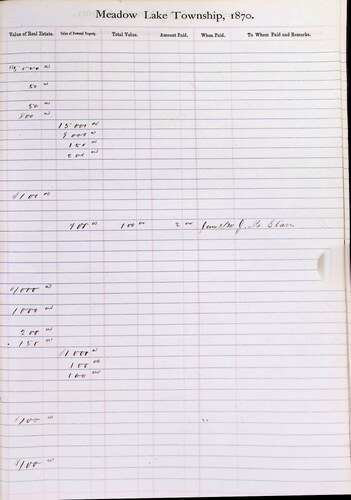 Meadow Lake Township, 1870.
Value of Real Estate. Value of Personal Property. Total Value. Amount Paid. When Paid. To Whom Paid and Remarks.
50 00
50 00
800 00
15000 00
150 00
200 00
$100 00
100 00 100 00 2 00
$1000 00
1000 00
200 00
150 00
$1000 00
100 00
100 00
$100 00
$100 00